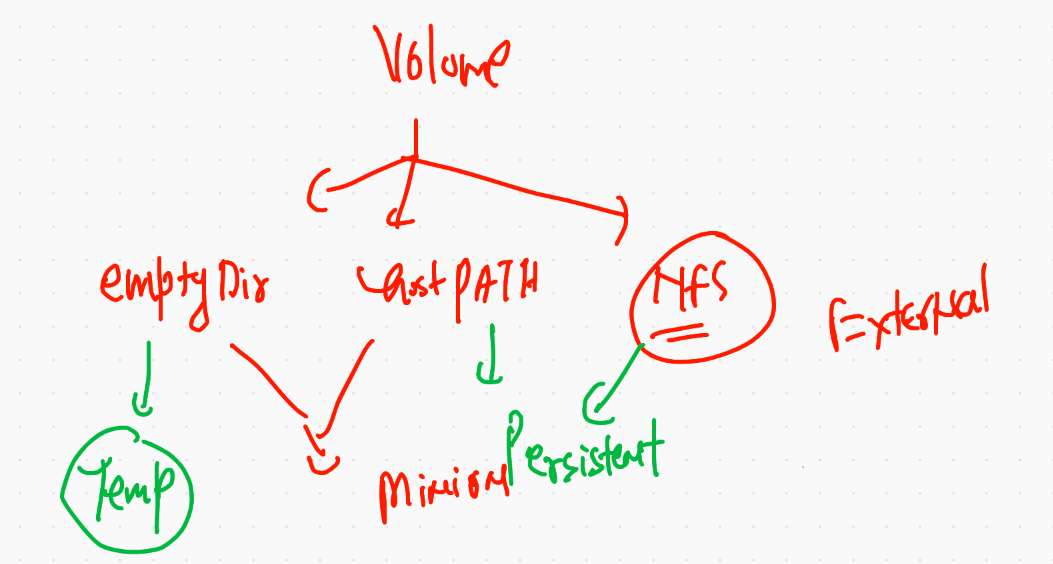 Volume
emptyDir hostPATH NfS External
Temp Minion Persistent